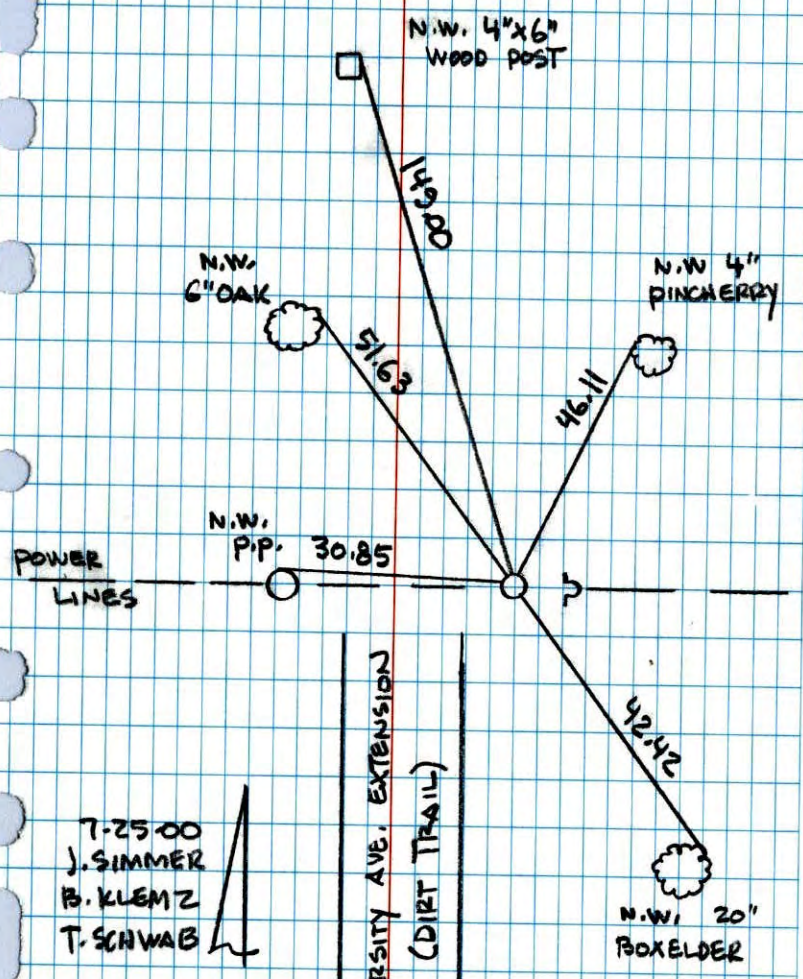 N.W. 4"x6"
WOOD POST
149.00
N.W.
6" OAK
51.63
N.W 4"
PINCHERRY
46.11
N.W.
P.P. 30.85
POWER
LINES
42.42
N.W. 20"
BOXELDER
RSITY AVE. EXTENSION
(DIRT TRAIL)
7-25-00
J. SIMMER
B. KLEMZ
T. SCHWAB